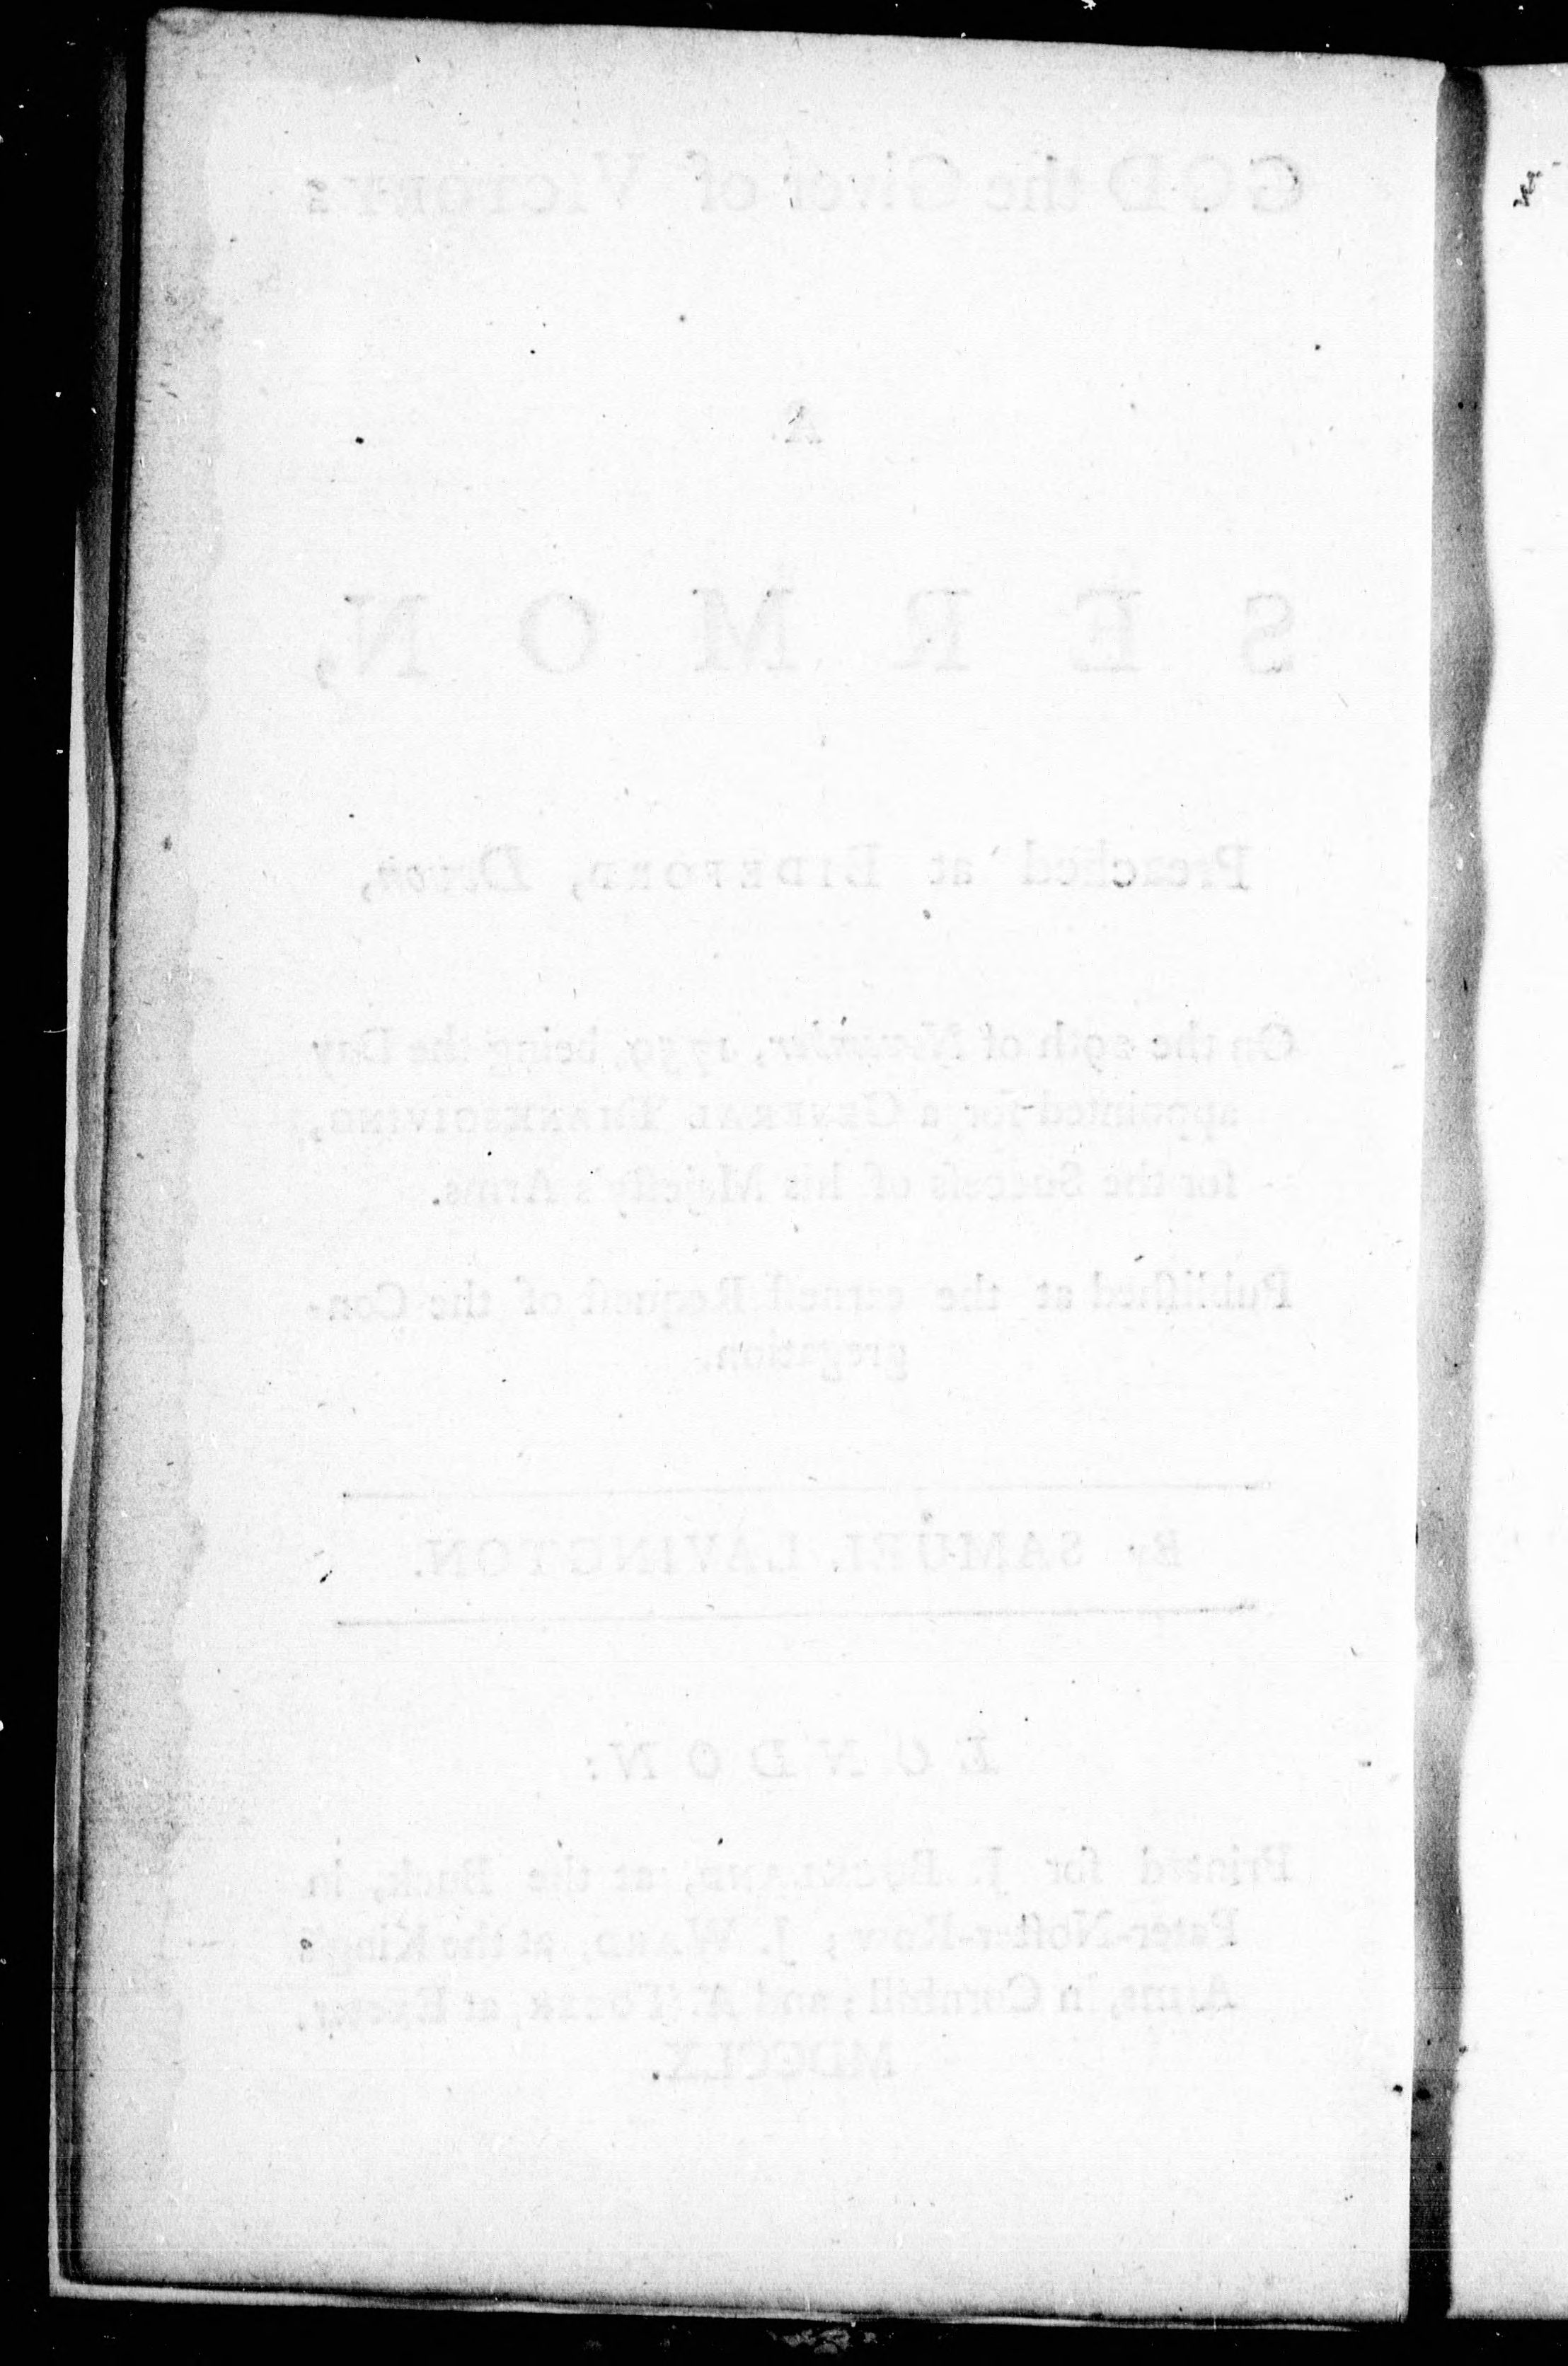 GOD the Giver of VICTORY:
A
SERMON,
Preached at BIDEFORD, Devon,
On the 29th of November, 1759, being the Day
appointed for a GENERAL THANKSGIVING,
for the Success of his Majesty's Arms.
Publiſhed at the earneſt Requeſt of the Con-
gregation.
By SAMUEL LAVINGTON.
LONDON:
Printed for J. BUCKLAND, at the Buck, in
Pater-Noſter-Row; J. WARD, at the King's
Arms, in Cornhill; and A. TOZER, at Exeter.
MDCCLX.